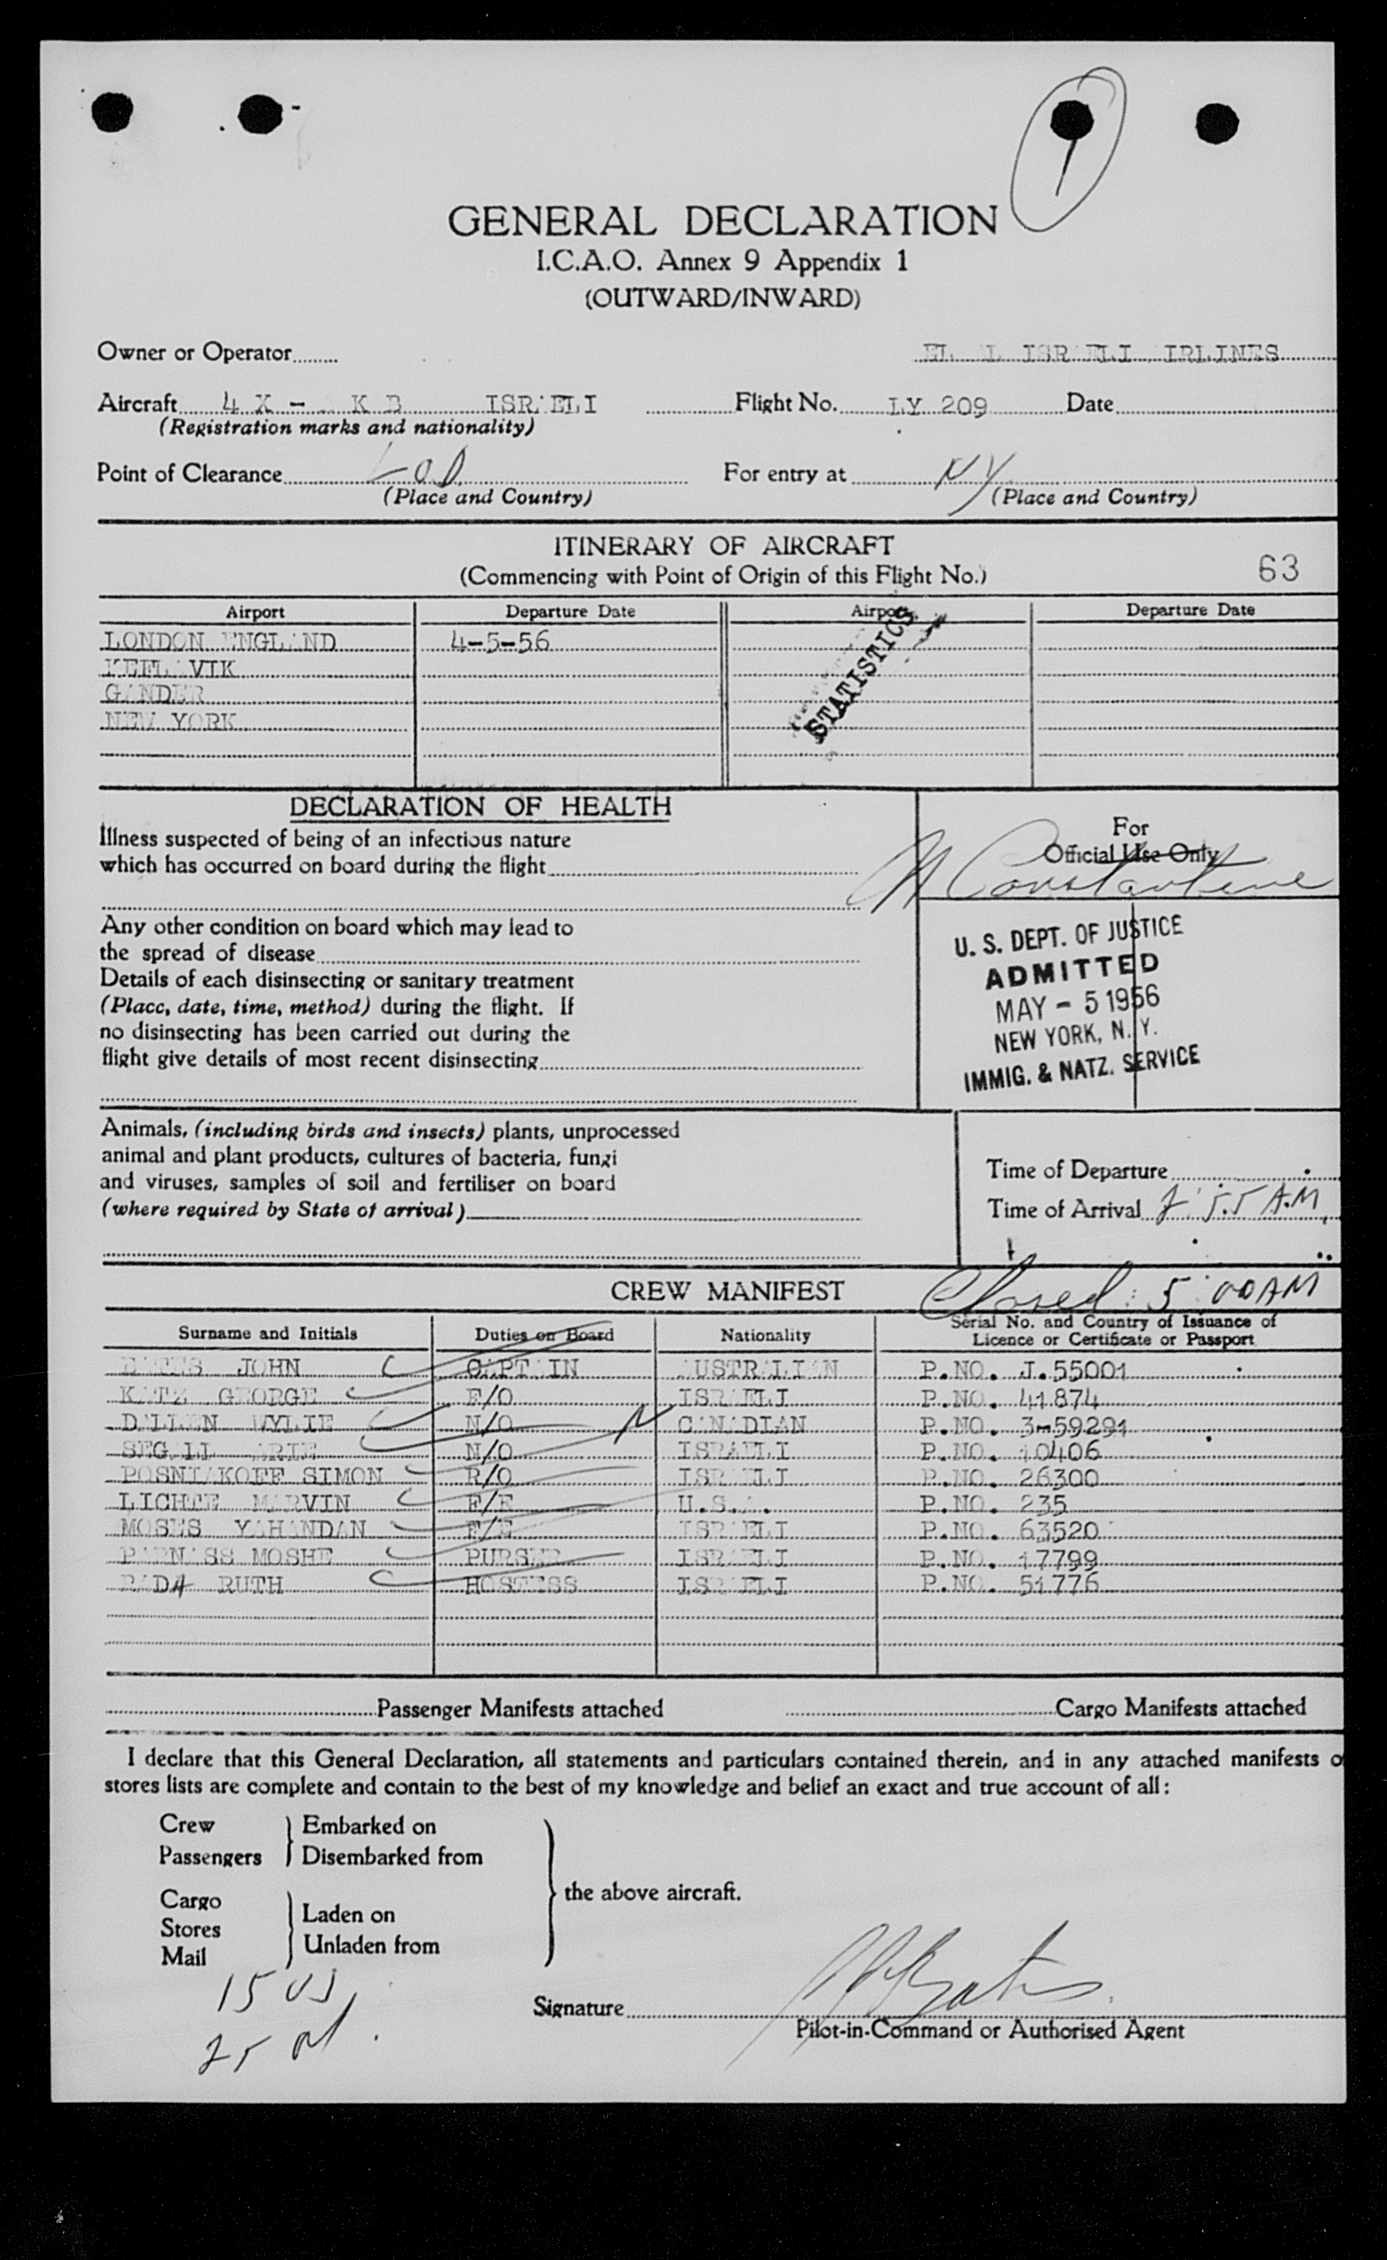 1
GENERAL DECLARATION
I.C.A.O. Annex 9 Appendix 1
(OUTWARD/INWARD)
Owner or Operator EL AL ISRAELI AIRLINES
Aircraft 4 X - A K B ISRAELI Flight No. LY 209 Date
(Registration marks and nationality)
Point of Clearance LOD For entry at NY
(Place and Country) (Place and Country)
ITINERARY OF AIRCRAFT
(Commencing with Point of Origin of this Flight No.) 63
Airport Departure Date Airport Departure Date
LONDON ENGLAND 4-5-56
KEFLAVIK
GANDER
NEW YORK
STATISTICS
DECLARATION OF HEALTH
Illness suspected of being of an infectious nature
which has occurred on board during the flight
For
Official Use Only
M Constantine
Any other condition on board which may lead to
the spread of disease
Details of each disinsecting or sanitary treatment
(Place, date, time, method) during the flight. If
no disinsecting has been carried out during the
flight give details of most recent disinsecting
U. S. DEPT. OF JUSTICE
ADMITTED
MAY - 5 1956
NEW YORK, N. Y.
IMMIG. & NATZ. SERVICE
Animals, (including birds and insects) plants, unprocessed
animal and plant products, cultures of bacteria, fungi
and viruses, samples of soil and fertiliser on board
(where required by State of arrival)
Time of Departure
Time of Arrival 2:55 A.M.
CREW MANIFEST Closed: 5:00 AM
Surname and Initials Duties on Board Nationality Serial No. and Country of Issuance of
Licence or Certificate or Passport
BATES JOHN CAPTAIN AUSTRALIAN P.NO. J.55001
KATZ GEORGE F/O ISRAELI P.NO. 41874
DALLAN WYLIE N/O N CANADIAN P.NO. 3-59291
SEGALL ARIE N/O ISRAELI P.NO. 10406
POSNIAKOFF SIMON R/O ISRAELI P.NO. 26300
LICHTE MARVIN F/E U.S.A. P.NO. 235
MOSES YAHANDAN F/E ISRAELI P.NO. 63520
PARNASS MOSHE PURSER ISRAELI P.NO. 17799
RADA RUTH HOSTESS ISRAELI P.NO. 51776
Passenger Manifests attached Cargo Manifests attached
I declare that this General Declaration, all statements and particulars contained therein, and in any attached manifests o
stores lists are complete and contain to the best of my knowledge and belief an exact and true account of all:
Crew Embarked on
Passengers Disembarked from
the above aircraft.
Cargo
Stores Laden on
Mail Unladen from
15 US
25 al
Signature
Pilot-in-Command or Authorised Agent